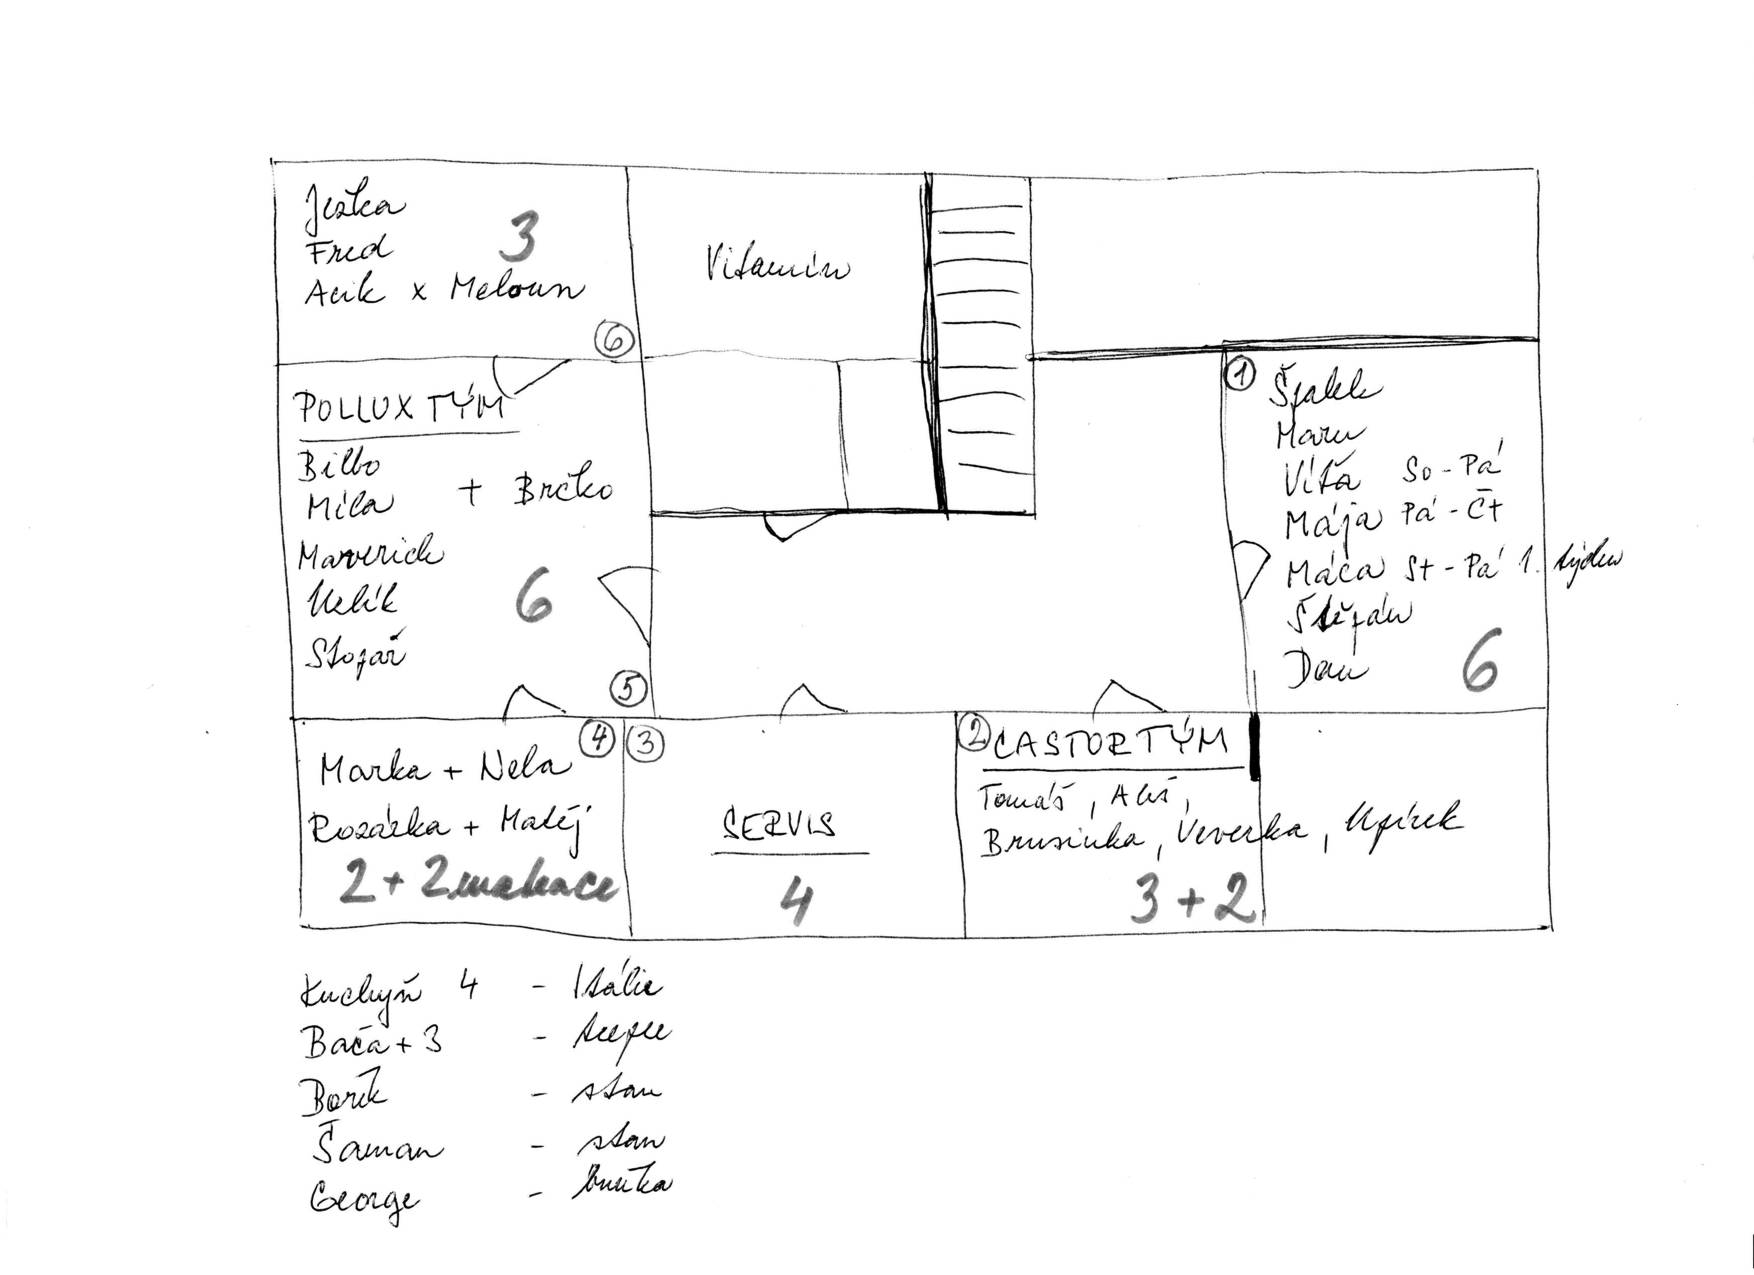 Jezka
Fred
Acik x Meloun
3
6
Vitamín
POLLUX TÝM
Bilbo
Míla + Brčko
Maverick
Uelík
Stopař
6
5
1
Špalek
Maru
Víťa So - Pá
Mája Pá - Čt
Máca St - Pá 1. týden
Štěpán
Dan
6
4
Marka + Nela
Rozárka + Matěj
2 + 2 matrace
3
SERVIS
4
2
CASTOR TÝM
Tomáš, Aleš,
Brusinka, Veverka, Upírek
3 + 2
Kuchyň 4 - Itálie
Bača + 3 - teepee
Bořík - stan
Šaman - stan
George - buňka